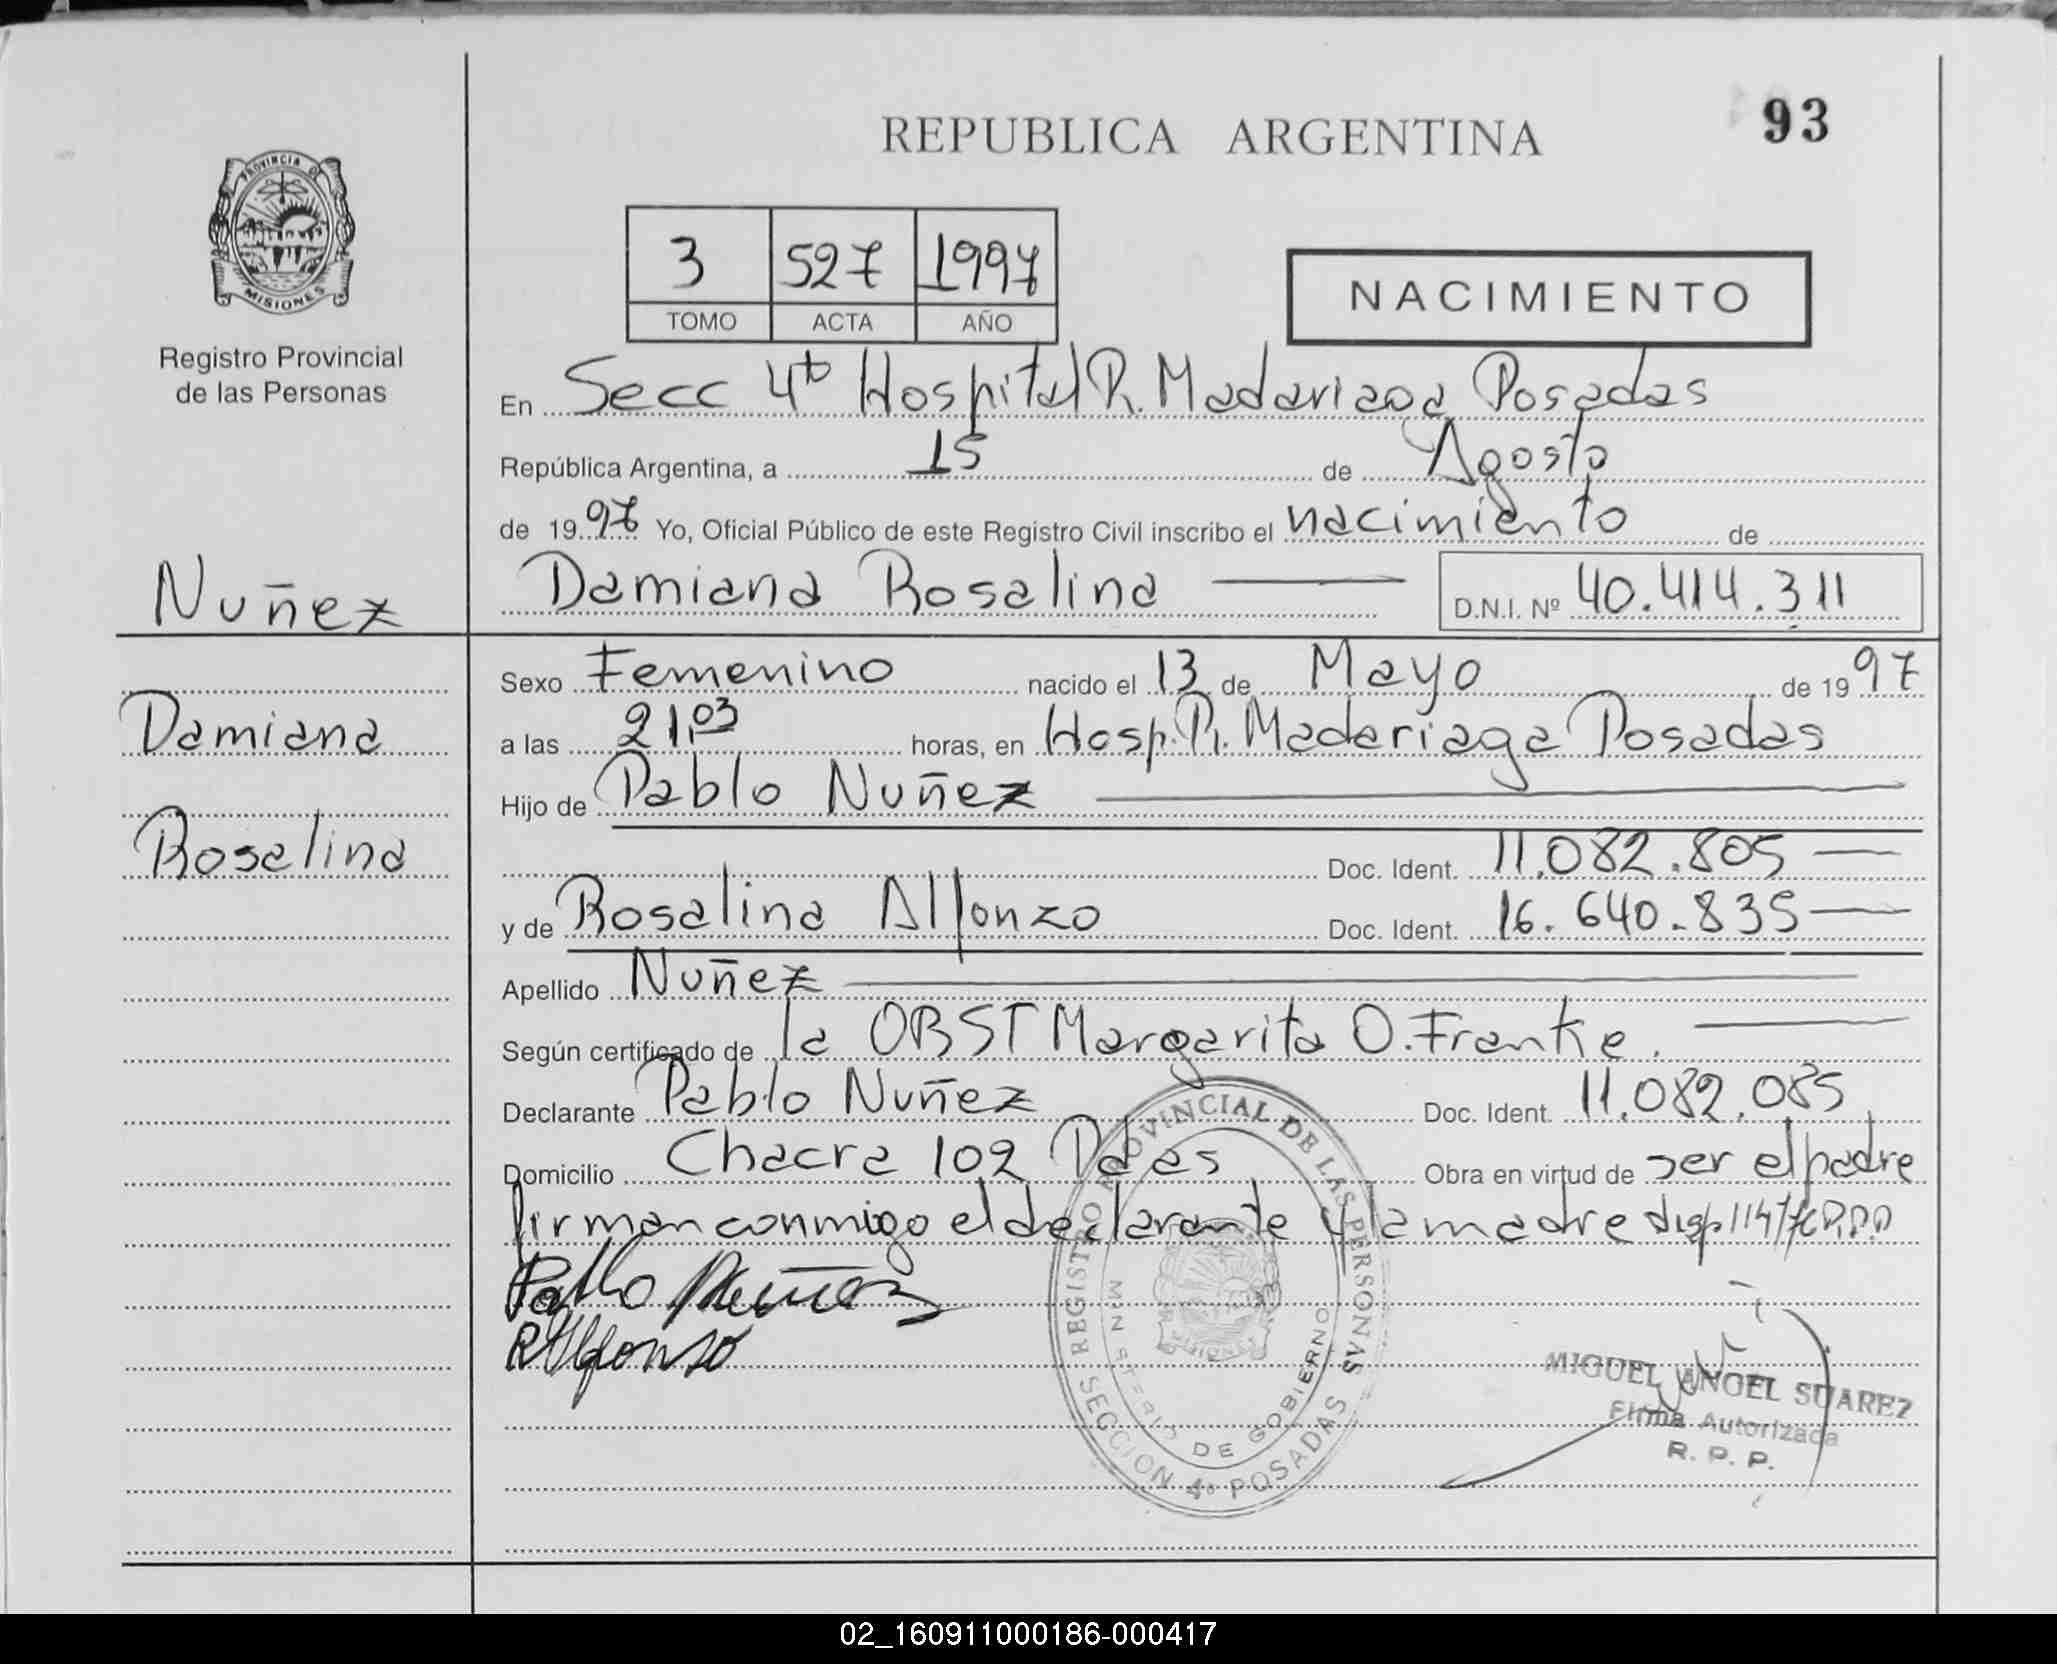 REPUBLICA ARGENTINA
93
PROVINCIA DE MISIONES
Registro Provincial
de las Personas
3 527 1997
TOMO ACTA AÑO
NACIMIENTO
En Secc 4ta Hospital R. Madariaga Posadas
República Argentina, a 15 de Agosto
de 1997 Yo, Oficial Público de este Registro Civil inscribo el nacimiento de
Nuñez
Damiana Rosalina
D.N.I. Nº 40.414.311
Sexo Femenino nacido el 13 de Mayo de 1997
Damiana
a las 21,03 horas, en Hosp. R. Madariaga Posadas
Hijo de Pablo Nuñez
Rosalina
Doc. Ident. 11.082.805
y de Rosalina Alfonzo Doc. Ident. 16.640.835
Apellido Nuñez
Según certificado de la OBST Margarita O. Franke.
Declarante Pablo Nuñez Doc. Ident. 11.082.085
Domicilio Chacra 102 Pdas Obra en virtud de ser el padre
firman conmigo el declarante y la madre disp 114/
Pablo Nuñez
R Alfonso
REGISTRO PROVINCIAL DE LAS PERSONAS
MINISTERIO DE GOBIERNO
SECCION 4º POSADAS
MIGUEL ANGEL SUAREZ
Firma Autorizada
R. P. P.
02_160911000186-000417